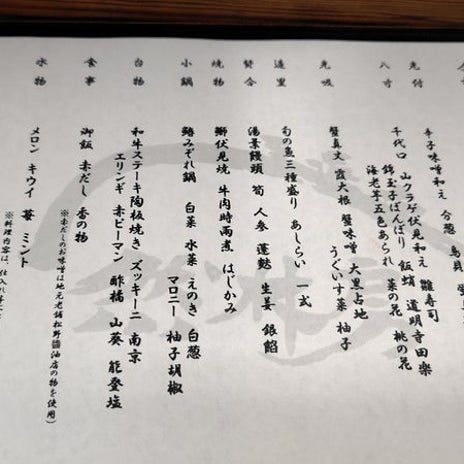 先付
辛子味噌和え 分葱 鳥貝
八寸
千代口 山クラゲ伏見和え 雛寿司
錦玉子ぼんぼり 飯蛸 道明寺田楽
海老芋五色あられ 菜の花 桃の花
先吸
蟹真丈 霞大根 蟹味噌 大黒占地
うぐいす菜 柚子
造里
旬の魚三種盛り あしらい 一式
焚合
湯葉饅頭 筍 人参 蓬麩 生姜 銀餡
焼物
鰤伏見焼 牛肉時雨煮 はじかみ
小鍋
鰆みぞれ鍋 白菜 水菜 えのき 白葱
マロニー 柚子胡椒
台物
和牛ステーキ陶板焼き ズッキーニ 南京
エリンギ 赤ピーマン 酢橘 山葵 能登塩
食事
御飯 赤だし 香の物
※赤だしのお味噌は地元老舗松野醤油店の物を使用)
水物
メロン キウイ 苺 ミント
※料理内容は、仕入れ